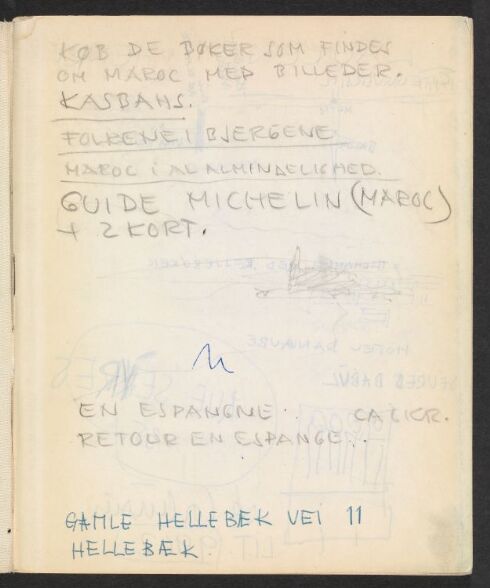 KØB DE BØKER SOM FINDES
OM MAROC MED BILLEDER.
KASBAHS.
FOLKENE I BJERGENE
MAROC I AL ALMINDELIGHED.
GUIDE MICHELIN (MAROC)
+ 2 KORT.
HOTEL DANAUBE
EN ESPANGNE..
RETOUR EN ESPANGE..
GAMLE HELLEBÆK VEI 11
HELLEBÆK.